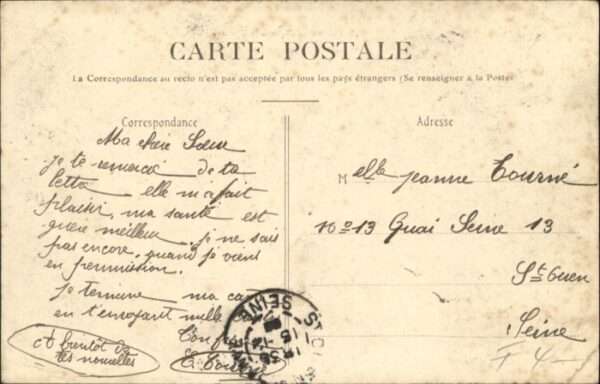 CARTE POSTALE
La Correspondance au recto n'est pas acceptée par tous les pays étrangers (Se renseigner à la Poste)
Correspondance
Adresse
Ma chère Sœur
je te remercie de ta
lettre elle m'a fait
plaisir, ma santé est
guère meilleur. je ne sais
pas encore quand je viens
en permission.
je termine ma
en t'envoyant mille
Ton
E. Tourné
à bientôt de
tes nouvelles
Melle jeanne Tourné
no 13 Quai Seine 13
St Ouen
Seine
SEINE